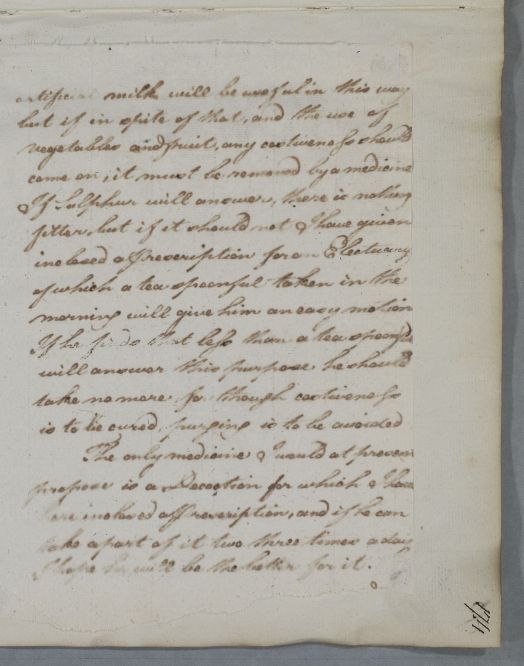 artificial milk will be useful in this way
but if in spite of that, and the use of
vegetables and fruit, any costiveness should
come on, it must be removed by a medicine
If Sulphur will answer, there is nothing
fitter, but if it should not I have given
inclosed a Prescription for an Electuary
of which a tea spoonful taken in the
morning will give him an easy motion
If he finds that less than a tea spoonful
will answer this purpose he should
take no more for though costiveness
is to be cured, purging is to be avoided
The only medicine I would at present
propose is a Decoction for which I have
here inclosed a Prescription, and if he can
take a part of it two three times a day
I hope he will be the better for it.